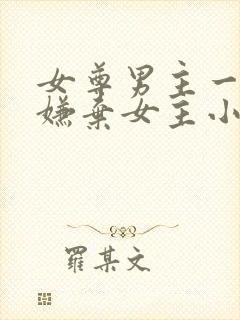 女尊男主一
嫌棄女主小
羅某文